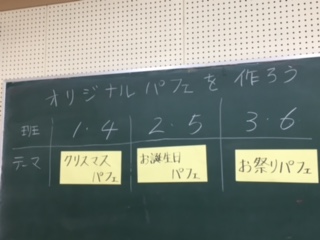 オリジナルパフェを作ろう
班 1・4 2・5 3・6
テーマ クリスマス お誕生日 お祭りパフェ
パフェ パフェ